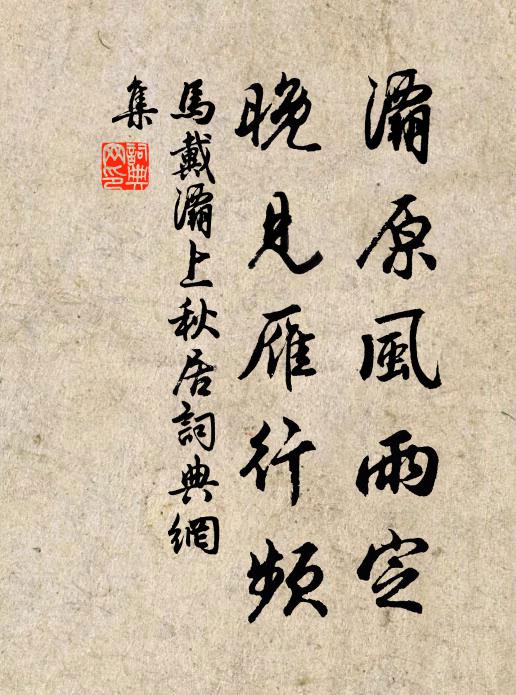 灞原風雨定
晚見雁行頻
馬戴灞上秋居詞典網
集
詞典
网印